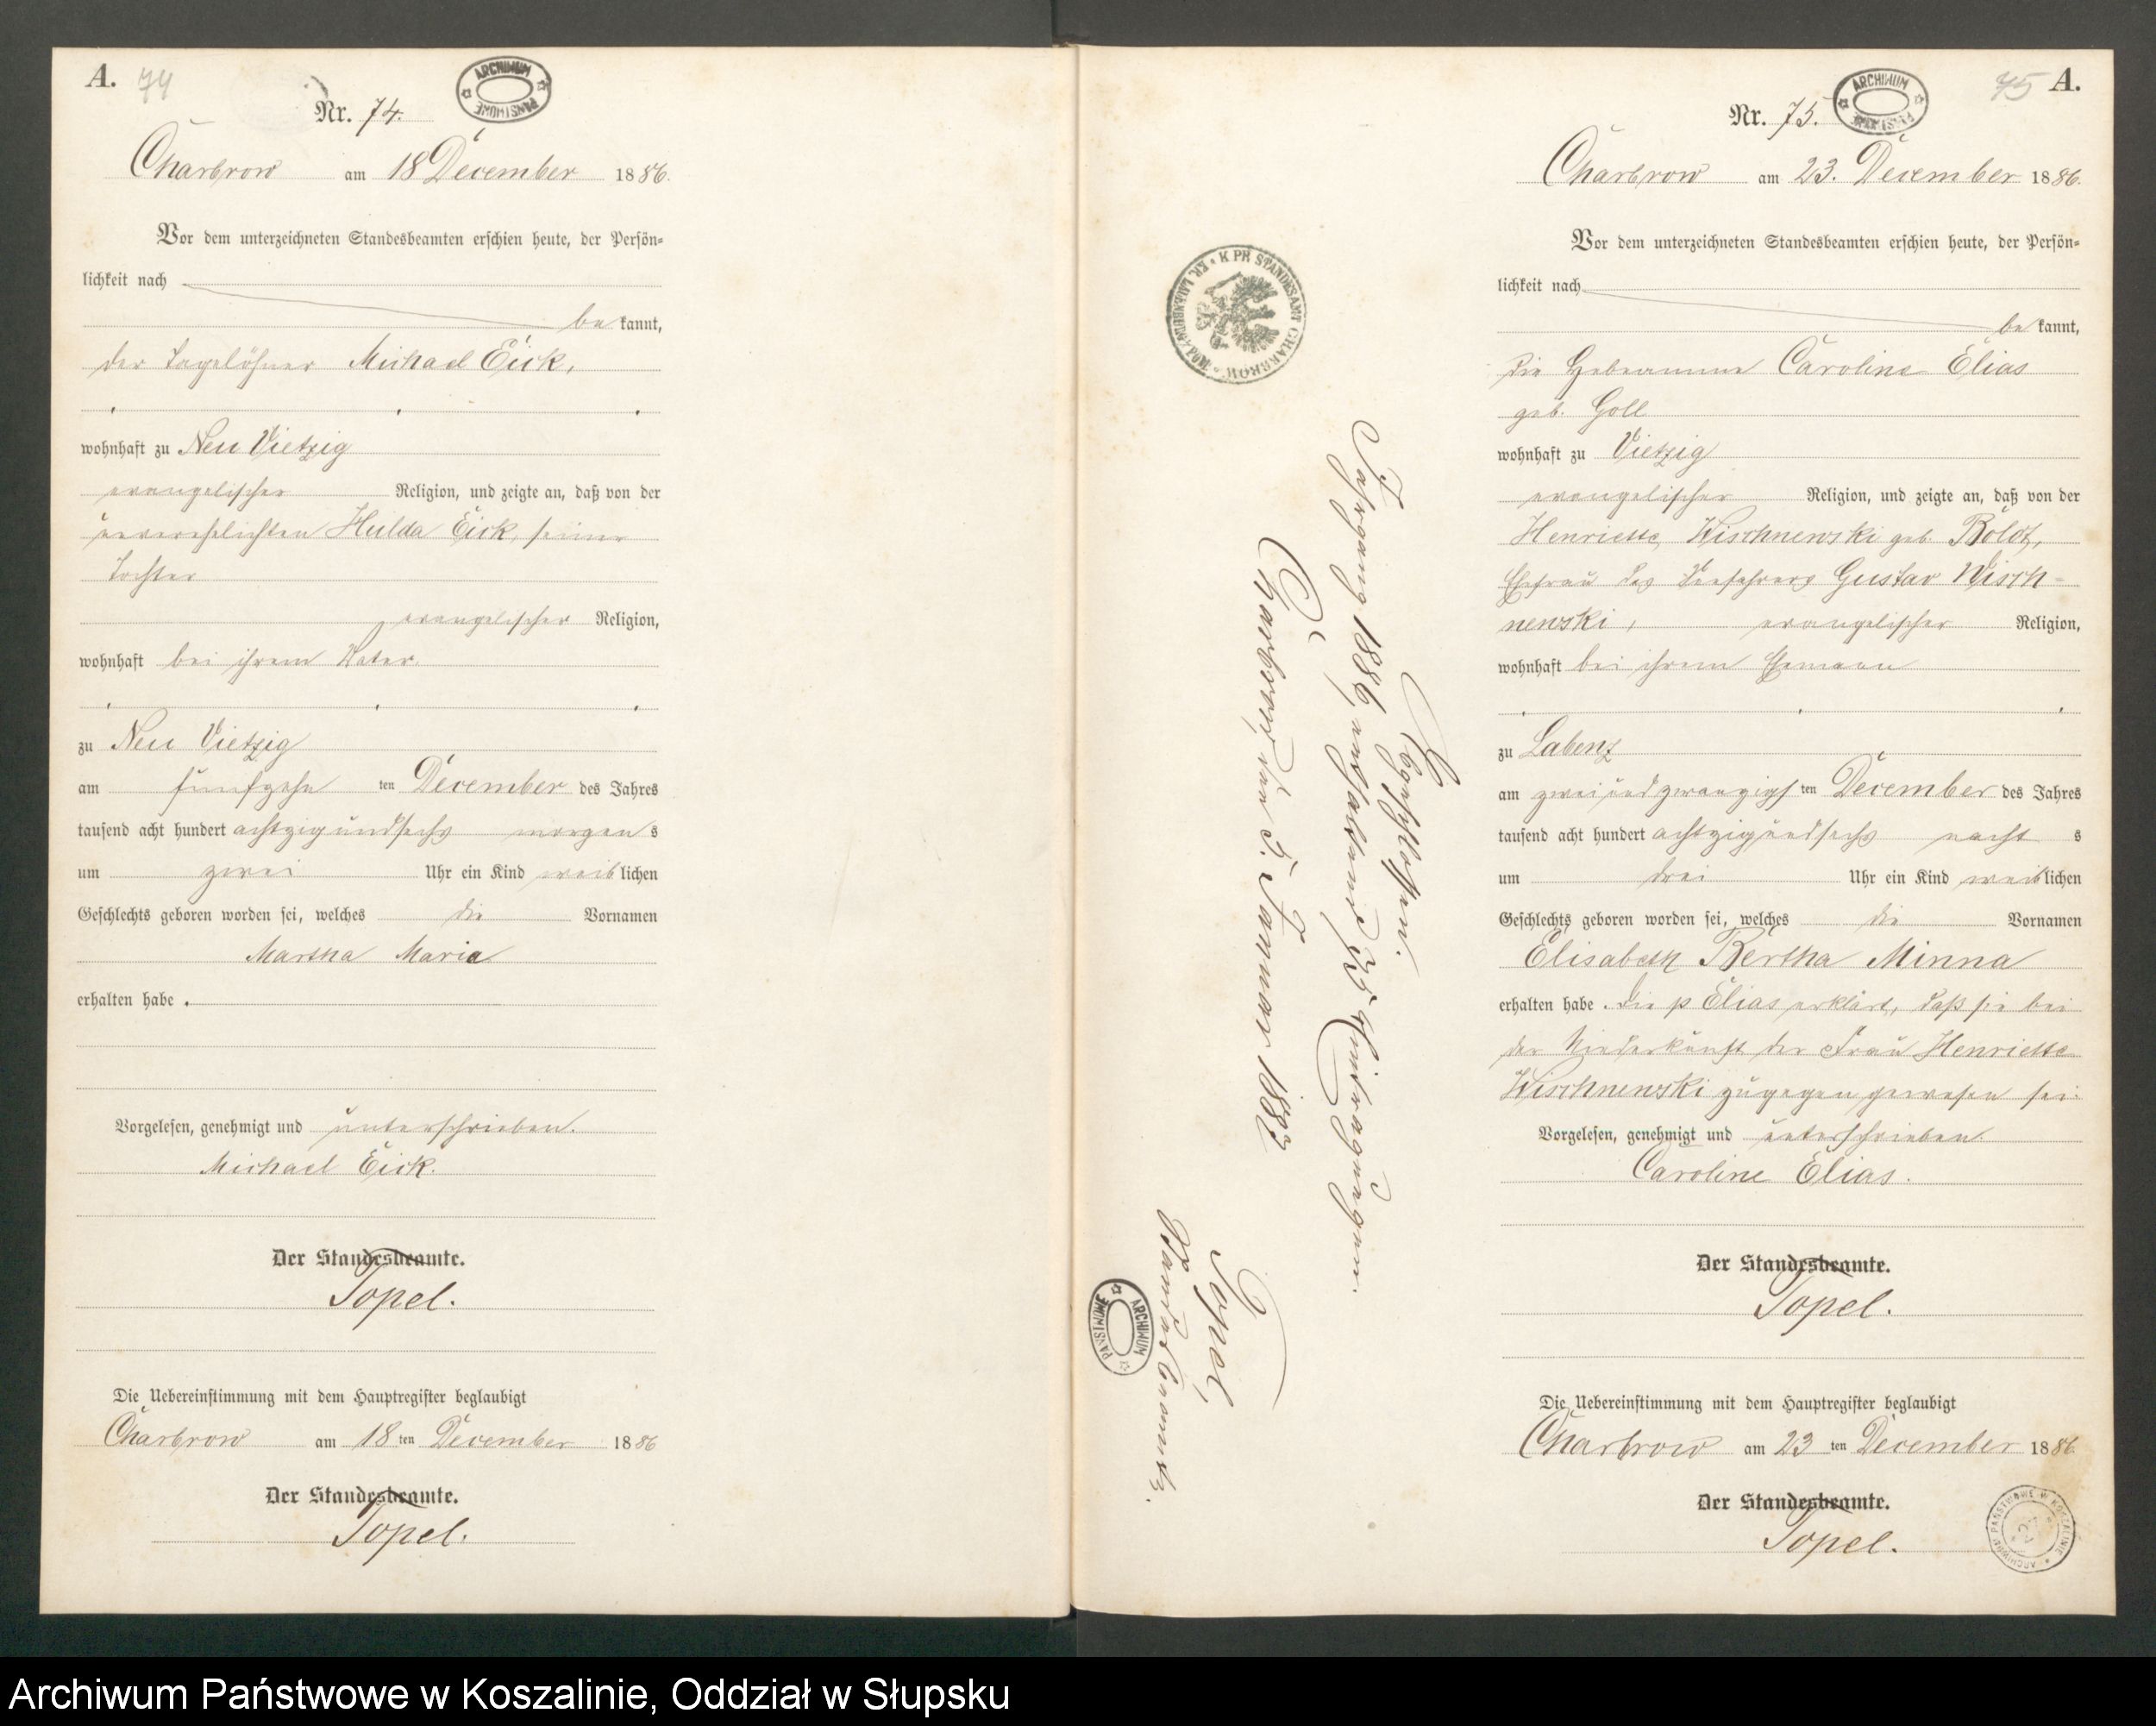 A. 74
Nr. 74.
ARCHIWUM PAŃSTWOWE
Charbrow am 18 December 1886.
Vor dem unterzeichneten Standesbeamten erschien heute, der Persön-
lichkeit nach
be kannt,
der Tagelöhner Michael Eick,
wohnhaft zu Neu Vietzig
evangelischer Religion, und zeigte an, daß von der
unverehelichten Hulda Eick, seiner
Tochter
evangelischer Religion,
wohnhaft bei ihrem Vater
zu Neu Vietzig
am fünfzehn ten December des Jahres
tausend acht hundert achtzig und sechs morgen s
um zwei Uhr ein Kind weiblichen
Geschlechts geboren worden sei, welches die Vornamen
Martha Maria
erhalten habe.
Vorgelesen, genehmigt und unterschrieben.
Michael Eick.
Der Standesbeamte.
Topel.
Die Uebereinstimmung mit dem Hauptregister beglaubigt
Charbrow am 18 ten December 1886
Der Standesbeamte.
Topel.
K. PR. STANDESAMT CHARBROW * KR. LAUENBURG I/POM *
Abgeschlossen.
Jahrgang 1886, enthaltend 75 Eintragungen.
Charbrow, den 3. Januar 1887
Topel,
Standesbeamter.
ARCHIWUM PAŃSTWOWE
75 A.
Nr. 75.
ARCHIWUM PAŃSTWOWE
Charbrow am 23. December 1886.
Vor dem unterzeichneten Standesbeamten erschien heute, der Persön-
lichkeit nach
be kannt,
die Hebeamme Caroline Elias
geb. Goll
wohnhaft zu Vietzig
evangelischer Religion, und zeigte an, daß von der
Henriette Wischnewski geb. Boldt,
Ehefrau des Gustav Wisch-
newski, evangelischer Religion,
wohnhaft bei ihrem Ehemann
zu Labenz
am zwei und zwanzigs ten December des Jahres
tausend acht hundert achtzig und sechs nacht s
um drei Uhr ein Kind weiblichen
Geschlechts geboren worden sei, welches die Vornamen
Elisabeth Bertha Minna
erhalten habe. Die p Elias erklärt, daß sie bei
der Niederkunft der Frau Henriette
Wischnewski zugegen gewesen sei.
Vorgelesen, genehmigt und unterschrieben.
Caroline Elias.
Der Standesbeamte.
Topel.
Die Uebereinstimmung mit dem Hauptregister beglaubigt
Charbrow am 23 ten December 1886
Der Standesbeamte.
Topel.
ARCHIWUM PAŃSTWOWE W KOSZALINIE
Archiwum Państwowe w Koszalinie, Oddział w Słupsku